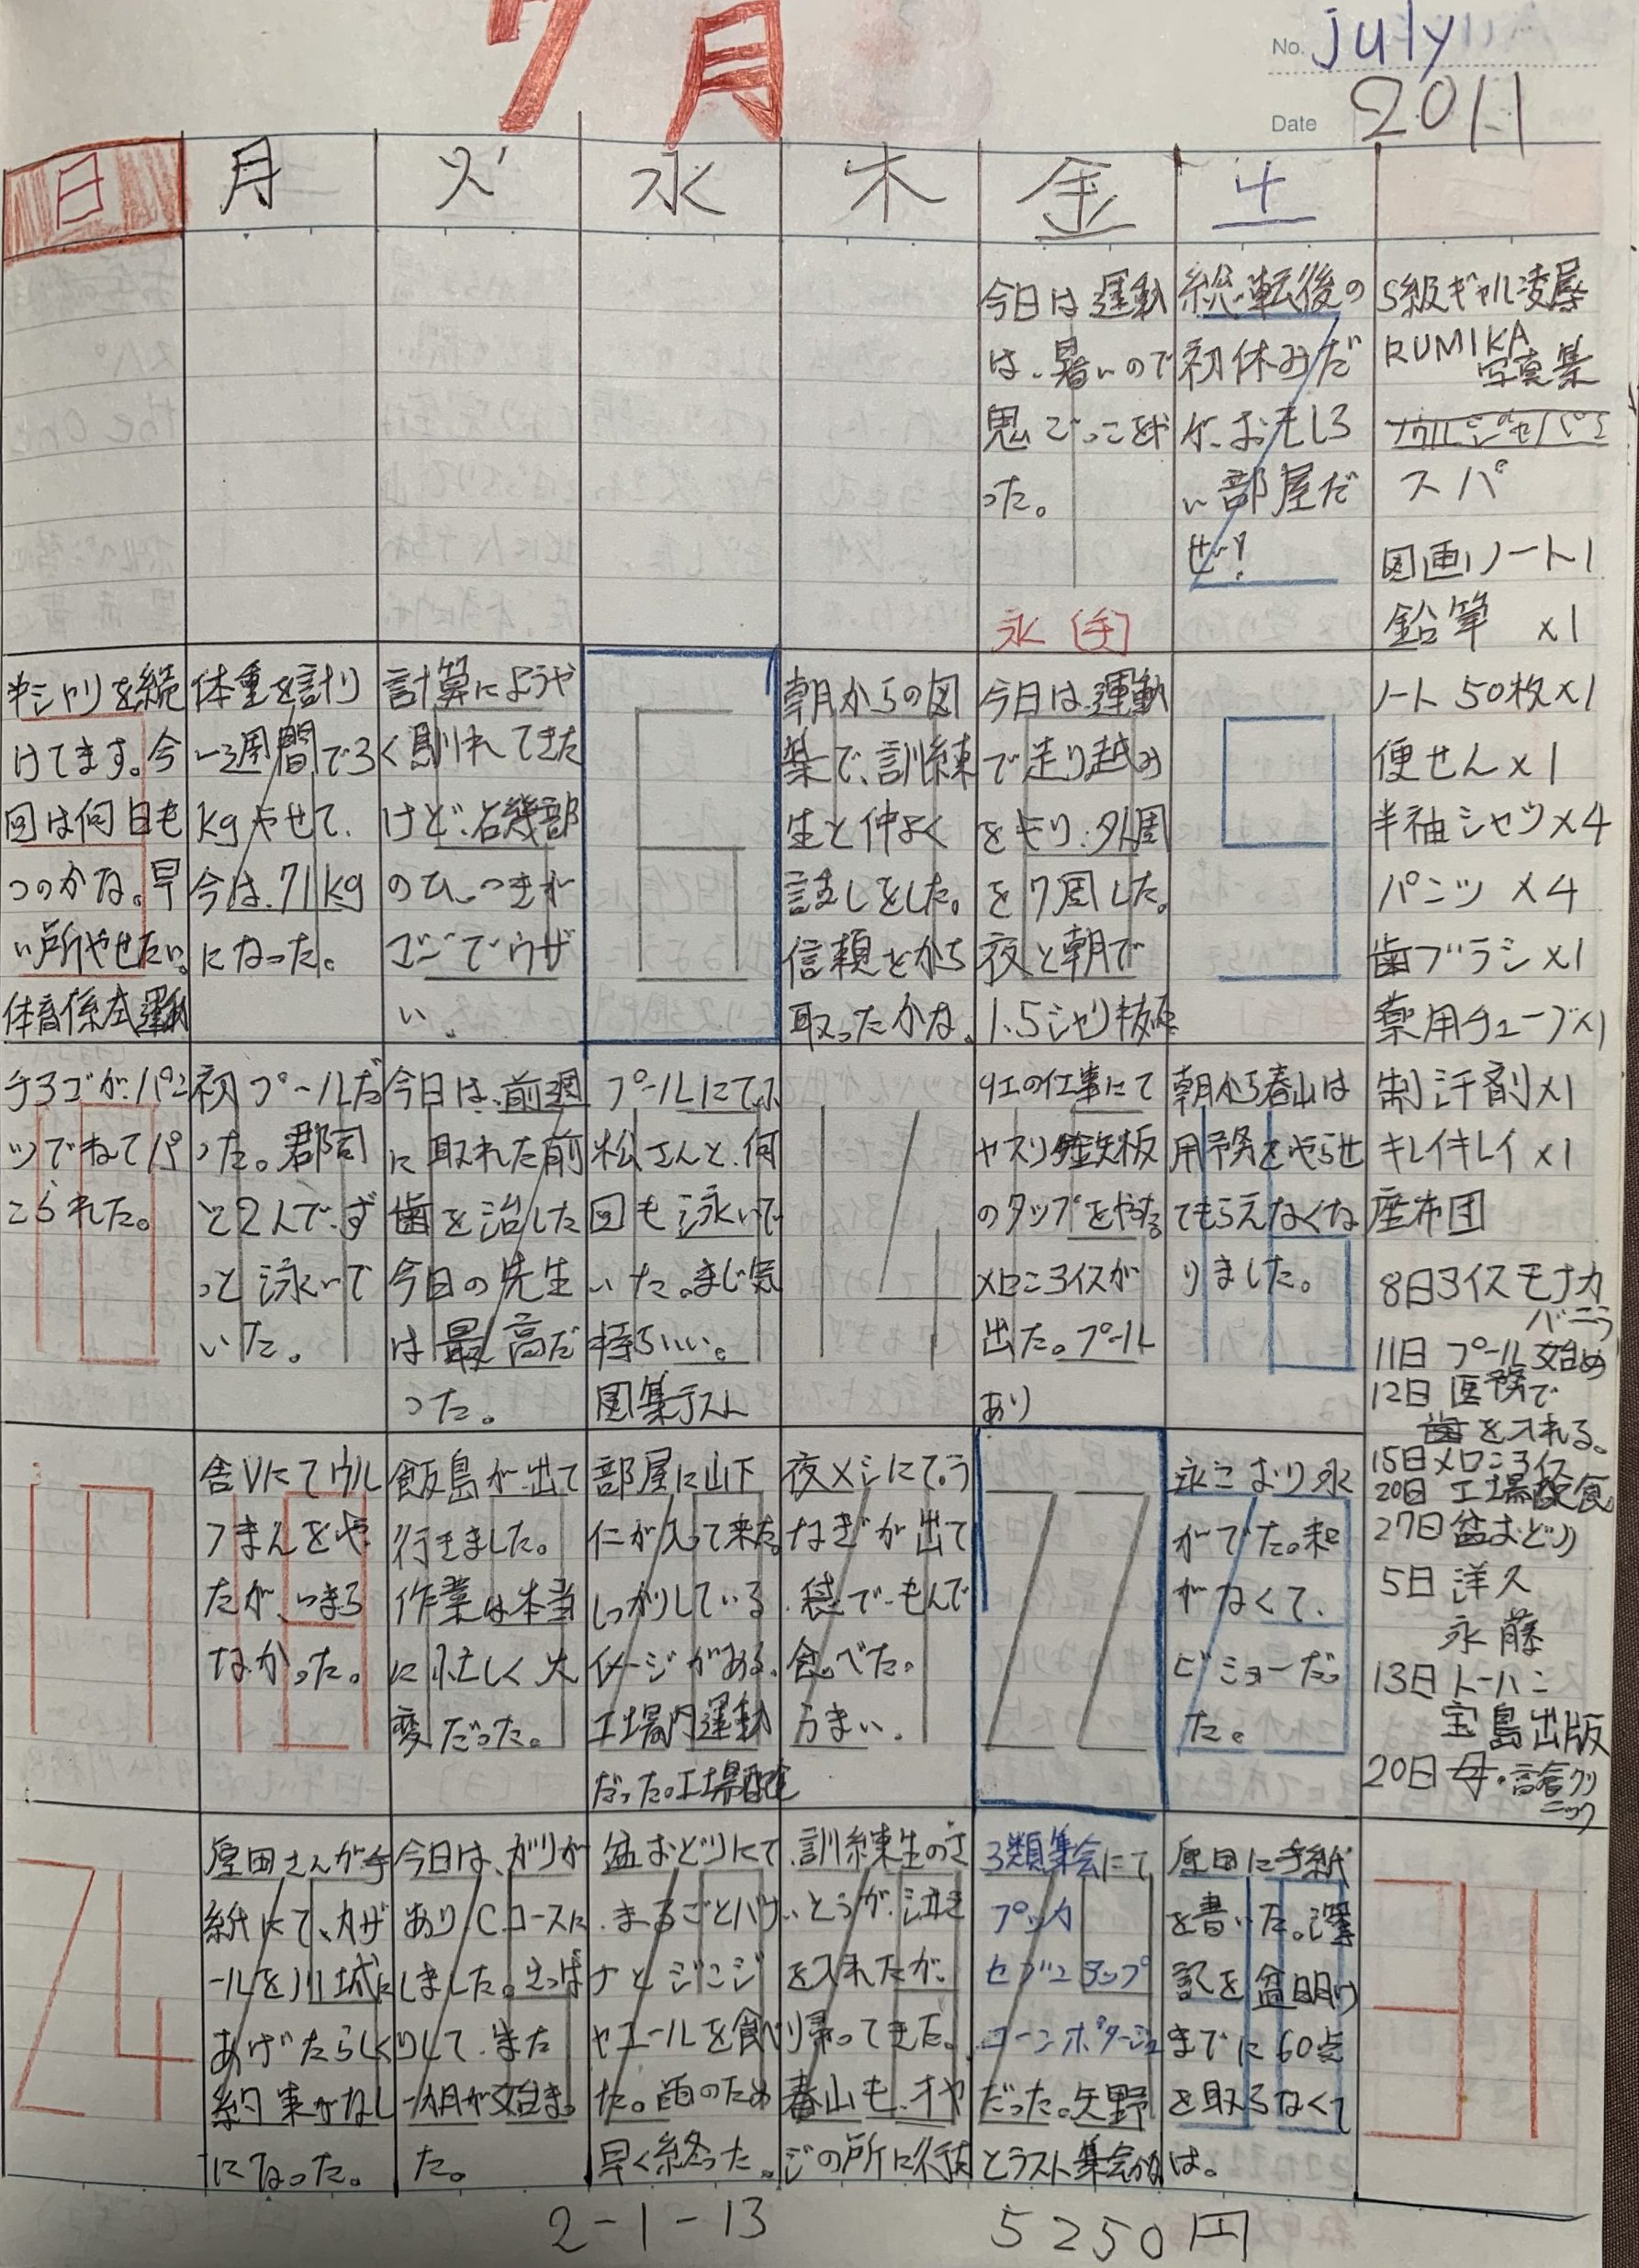 7月
No. july
Date 2011
日 月 火 水 木 金 土
今日は運動
は、暑いので
鬼ごっこをや
った。
氷
総転後の
初休みだ
が、おもしろ
い部屋だ
ぜ!
S級ギャル凌辱
RUMIKA
写真集
スパ
図画ノート1
鉛筆 x1
半シャリを続
けてます。今
回は何日も
つのかな。早
い所やせたい。
体育係式運動
体重を計り
一週間で3
kgやせて、
今は、71kg
になった。
計算にようや
く馴れてきた
けど、石幾部
のひっつきが
マジでウザ
い。
6
朝からの図
築で、訓練
生と仲よく
話しをした。
信頼をかち
取ったかな。
今日は運動
で走り込み
をやり、外周
を7周した。
夜と朝で
1.5シャリ
9
ノート 50枚x1
便せんx1
半袖シャツx4
パンツ x4
歯ブラシx1
薬用チューブx1
チョゴがパン
ツでねてパ
こられた。
10
初プールだ
った。郡司
と2人で、ず
っと泳いで
いた。
今日は、前週
に取れた前
歯を治した
今日の先生
は最高だ
った。
プールにて小
松さんと、何
回も泳いで
いた。まじ気
持ちいい。
図集テスト
14
9工の仕事にて
ヤスリ鉄板
のタップをやる
メロンアイスが
出た。プール
あり
朝から春山は
用務をやらせ
てもらえなくな
りました。
制汗剤x1
キレイキレイ x1
座布団
8日アイスモナカ
バニラ
11日 プール始め
12日 医務で
歯を入れる。
15日メロンアイス
20日 工場配食
27日盆おどり
5日 洋久
永藤
13日トーハン
宝島出版
20日 母・
クリニック
17
舎Vにてウル
つまんをや
たが、つまら
なかった。
飯島が出て
行きました。
作業は本当
に忙しく大
変だった。
部屋に山下
仁が入って来た。
しっかりしている
イメージがある。
工場内運動
だった。工場配食
夜メシにてう
なぎが出て
袋で、もんで
食べた。
うまい。
22
氷こおり氷
がでた。味
がなくて、
ビミョーだっ
た。
24
原田さんが手
紙にて、カザ
ールを川城に
あげたらしく
約束がなし
になった。
今日は、ガリが
ありCコースに
しました。さっぱ
りして、また
一ヵ月が始まっ
た。
盆おどりにて
まるごとバナ
ナとジンジ
ャエールを食べ
た。雨のため
早く終った。
訓練生のさ
いとうが、泣き
を入れたが、
帰ってきた。
春山も、オヤ
ジの所に行
3類集会にて
プッカ
セブンアップ
コーンポタージュ
だった。矢野
とラスト集会かな
原田に手紙
を書いた。簿
記を盆明け
までに60点
を取らなくて
は。
31
2-1-13 5250円